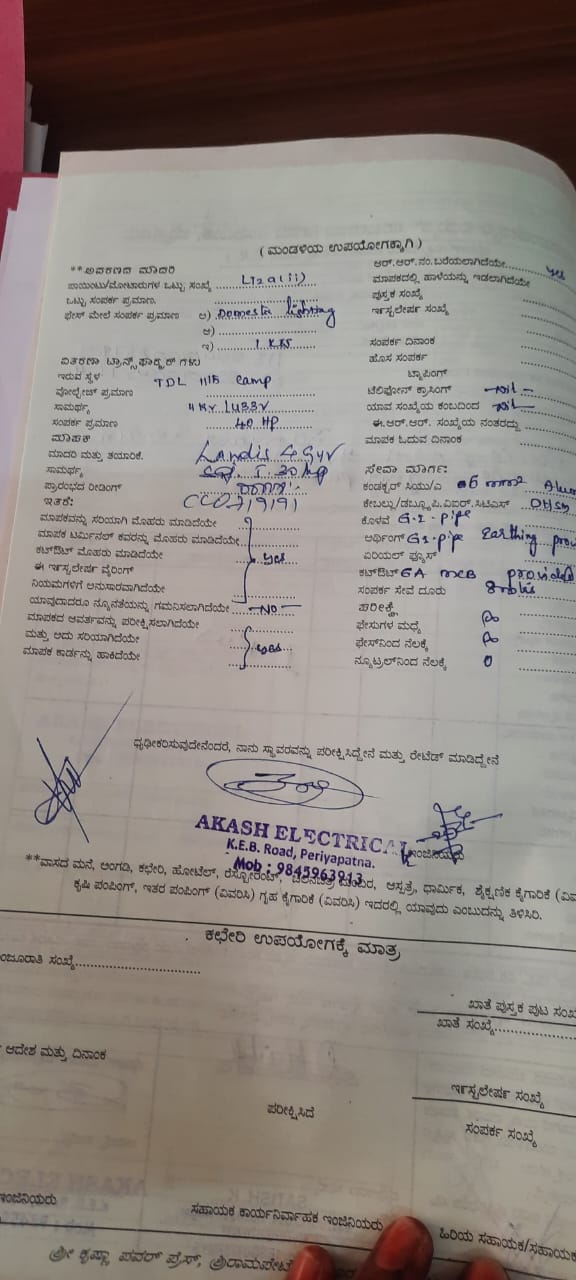 ( ಮಂಡಳಿಯ ಉಪಯೋಗಕ್ಕಾಗಿ )
**ಆವರಣದ ಮಾದರಿ
ಪಾಯಿಂಟು/ಮೋಟಾರುಗಳ ಒಟ್ಟು ಸಂಖ್ಯೆ LT2a(ii)
ಒಟ್ಟು ಸಂಪರ್ಕ ಪ್ರಮಾಣ.
ಫೇಸ್ ಮೇಲೆ ಸಂಪರ್ಕ ಪ್ರಮಾಣ ಅ) Domestic lighting
ಆ)
ಇ) 1 KW
ವಿತರಣಾ ಟ್ರಾನ್ಸ್‌ಫಾರ್ಮ್ರರ್ ಗಳು
ಇರುವ ಸ್ಥಳ TDL camp
ವೋಲ್ಟೇಜ್ ಪ್ರಮಾಣ
ಸಾಮರ್ಥ್ಯ 11 KV
ಸಂಪರ್ಕ ಪ್ರಮಾಣ 40 HP
ಮಾಪಕ
ಮಾದರಿ ಮತ್ತು ತಯಾರಿಕೆ. Landis & Gyr
ಸಾಮರ್ಥ್ಯ
ಪ್ರಾರಂಭದ ರೀಡಿಂಗ್
ಇತರೆ:
ಮಾಪಕವನ್ನು ಸರಿಯಾಗಿ ಮೊಹರು ಮಾಡಿದೆಯೇ
ಮಾಪಕ ಟರ್ಮಿನಲ್ ಕವರನ್ನು ಮೊಹರು ಮಾಡಿದೆಯೇ
ಕಟ್‌ಔಟ್ ಮೊಹರು ಮಾಡಿದೆಯೇ yes
ಈ ಇನ್ಸ್ಟಲೇಷನ್ ವೈರಿಂಗ್
ನಿಯಮಗಳಿಗೆ ಅನುಸಾರವಾಗಿದೆಯೇ
ಯಾವುದಾದರೂ ನ್ಯೂನತೆಯನ್ನು ಗಮನಿಸಲಾಗಿದೆಯೇ -NO-
ಮಾಪಕದ ಆವರ್ತವನ್ನು ಪರೀಕ್ಷಿಸಲಾಗಿದೆಯೇ
ಮತ್ತು ಅದು ಸರಿಯಾಗಿದೆಯೇ yes
ಮಾಪಕ ಕಾರ್ಡನ್ನು ಹಾಕಿದೆಯೇ
ಆರ್.ಆರ್.ನಂ.ಬರೆಯಲಾಗಿದೆಯೇ yes
ಮಾಪಕದಲ್ಲಿ ಹಾಳೆಯನ್ನು ಇಡಲಾಗಿದೆಯೇ
ಪುಸ್ತಕ ಸಂಖ್ಯೆ
ಇನ್ಸ್ಟಲೇಷನ್ ಸಂಖ್ಯೆ
ಸಂಪರ್ಕ ದಿನಾಂಕ
ಹೊಸ ಸಂಪರ್ಕ
ಟ್ಯಾಪಿಂಗ್
ಟೆಲಿಫೋನ್ ಕ್ರಾಸಿಂಗ್ -Nil-
ಯಾವ ಸಂಖ್ಯೆಯ ಕಂಬದಿಂದ -Nil-
ಈ.ಆರ್.ಆರ್. ಸಂಖ್ಯೆಯ ನಂತರದ್ದು
ಮಾಪಕ ಓದುವ ದಿನಾಂಕ
ಸೇವಾ ಮಾರ್ಗ:
ಕಂಡಕ್ಟರ್ ಸಿಯು/ಎ
ಕೇಬಲ್ಲು/ಡಬ್ಲ್ಯೂ.ಪಿ.ಐಆರ್.ಸಿಟಿಎಸ್
ಕೊಳವೆ G-I-pipe
ಅರ್ಥಿಂಗ್ GI-pipe Earthing
ಏರಿಯಲ್ ಫ್ಯೂಸ್
ಕಟ್‌ಔಟ್ 6A MCB provided
ಸಂಪರ್ಕ ಸೇವೆ ದೂರು
ಪರೀಕ್ಷೆ
ಫೇಸುಗಳ ಮಧ್ಯೆ
ಫೇಸ್‌ನಿಂದ ನೆಲಕ್ಕೆ
ನ್ಯೂಟ್ರಲ್‌ನಿಂದ ನೆಲಕ್ಕೆ 0
ಧೃಢೀಕರಿಸುವುದೇನೆಂದರೆ, ನಾನು ಸ್ಥಾವರವನ್ನು ಪರೀಕ್ಷಿಸಿದ್ದೇನೆ ಮತ್ತು ರೇಟೆಡ್ ಮಾಡಿದ್ದೇನೆ
AKASH ELECTRICAL
K.E.B. Road, Periyapatna.
Mob : 9845963913
**ವಾಸದ ಮನೆ, ಅಂಗಡಿ, ಕಛೇರಿ, ಹೋಟೆಲ್, ರೆಸ್ಟೋರೆಂಟ್, ಚಲನಚಿತ್ರ ಮಂದಿರ, ಆಸ್ಪತ್ರೆ, ಧಾರ್ಮಿಕ, ಶೈಕ್ಷಣಿಕ ಕೈಗಾರಿಕೆ
ಕೃಷಿ ಪಂಪಿಂಗ್, ಇತರ ಪಂಪಿಂಗ್ (ವಿವರಿಸಿ) ಗೃಹ ಕೈಗಾರಿಕೆ (ವಿವರಿಸಿ) ಇದರಲ್ಲಿ ಯಾವುದು ಎಂಬುದನ್ನು ತಿಳಿಸಿರಿ.
ಕಛೇರಿ ಉಪಯೋಗಕ್ಕೆ ಮಾತ್ರ
ಂಜೂರಾತಿ ಸಂಖ್ಯೆ
ಖಾತೆ ಪುಸ್ತಕ ಪುಟ ಸಂಖ
ಖಾತೆ ಸಂಖ್ಯೆ
ಆದೇಶ ಮತ್ತು ದಿನಾಂಕ
ಇನ್ಸ್ಟಲೇಷನ್ ಸಂಖ್ಯೆ
ಪರೀಕ್ಷಿಸಿದೆ
ಸಂಪರ್ಕ ಸಂಖ್ಯೆ
ಇಂಜಿನಿಯರು
ಸಹಾಯಕ ಕಾರ್ಯನಿರ್ವಾಹಕ ಇಂಜಿನಿಯರು
ಹಿರಿಯ ಸಹಾಯಕ/ಸಹಾಯಕ
ಶ್ರೀ ಕೃಷ್ಣಾ ಪವರ್ ಪ್ರೆಸ್, ಶ್ರೀರಾಮಪೇಟೆ